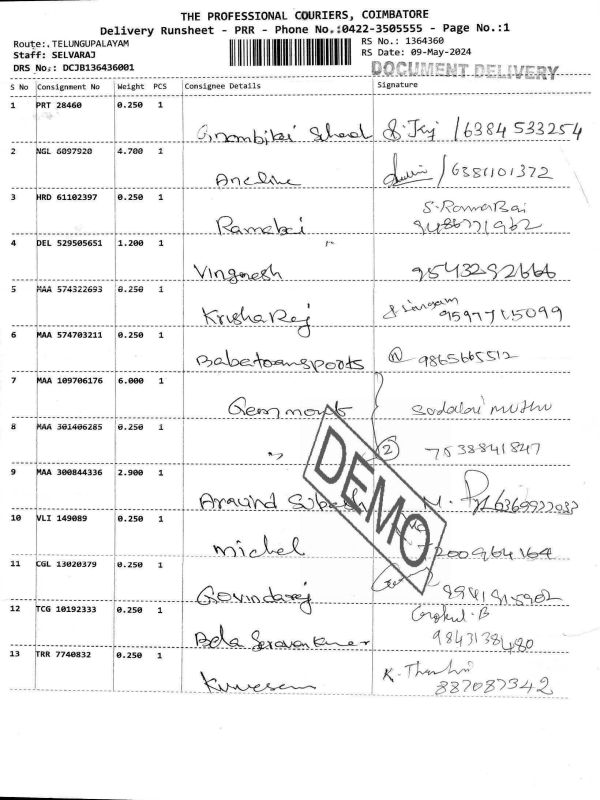 THE PROFESSIONAL COURIERS, COIMBATORE
Delivery Runsheet - PRR - Phone No.:0422-3505555 - Page No.:1
Route:.TELUNGUPALAYAM
Staff: SELVARAJ
DRS No.: DCJB136436001
RS No.: 1364360
RS Date: 09-May-2024
DOCUMENT DELIVERY
S No Consignment No Weight PCS Consignee Details Signature
1 PRT 28460 0.250 1
School /6384 533254
2 NGL 6097920 4.700 1
Ancline /6381101372
3 HRD 61102397 0.250 1
S. RamaBai
Ramabai 9486771962
4 DEL 529505651 1.200 1
Vingnesh 9543292666
5 MAA 574322693 0.250 1
KrishaRaj 9597715099
6 MAA 574703211 0.250 1
Babatoansports 9865665512
7 MAA 109706176 6.000 1
Gem
8 MAA 301406285 0.250 1
" 2 7538841847
9 MAA 300844336 2.900 1
Aravind M.
10 VLI 149089 0.250 1
michel 7200964164
11 CGL 13020379 0.250 1
Govindaraj
12 TCG 10192333 0.250 1
Gokul.B
Bala Saravankumar 9843138480
13 TRR 7740832 0.250 1
K.
887087342
DEMO